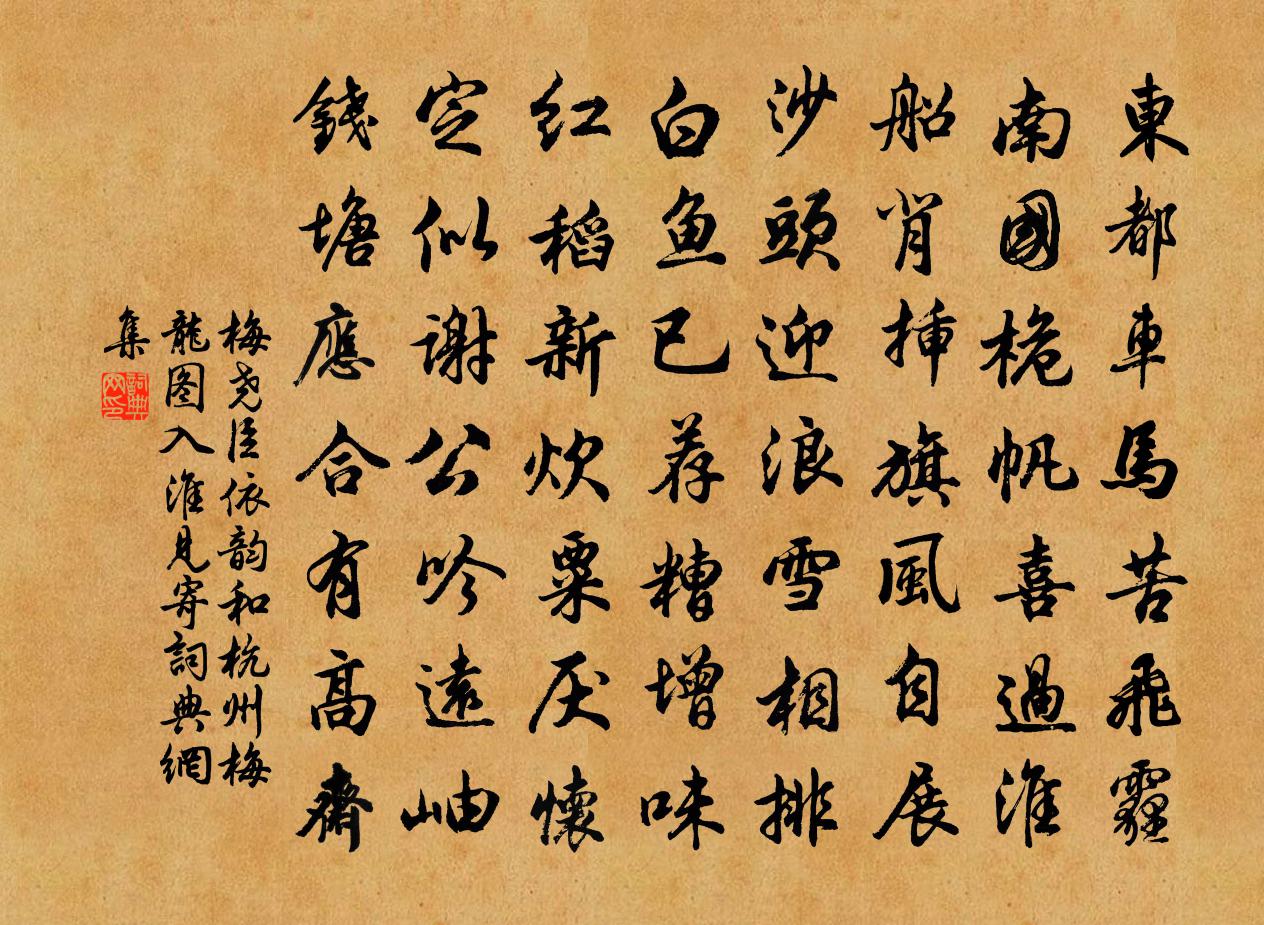 東都車馬苦飛霾
南國桅帆喜過淮
船背插旗風自展
沙頭迎浪雪相排
白魚已荐糟增味
紅稻新炊粟厌懷
定似謝公吟遠岫
錢塘應合有高齋
梅尧臣依韵和杭州梅
龍图入淮見寄詞典網
集
詞典网印